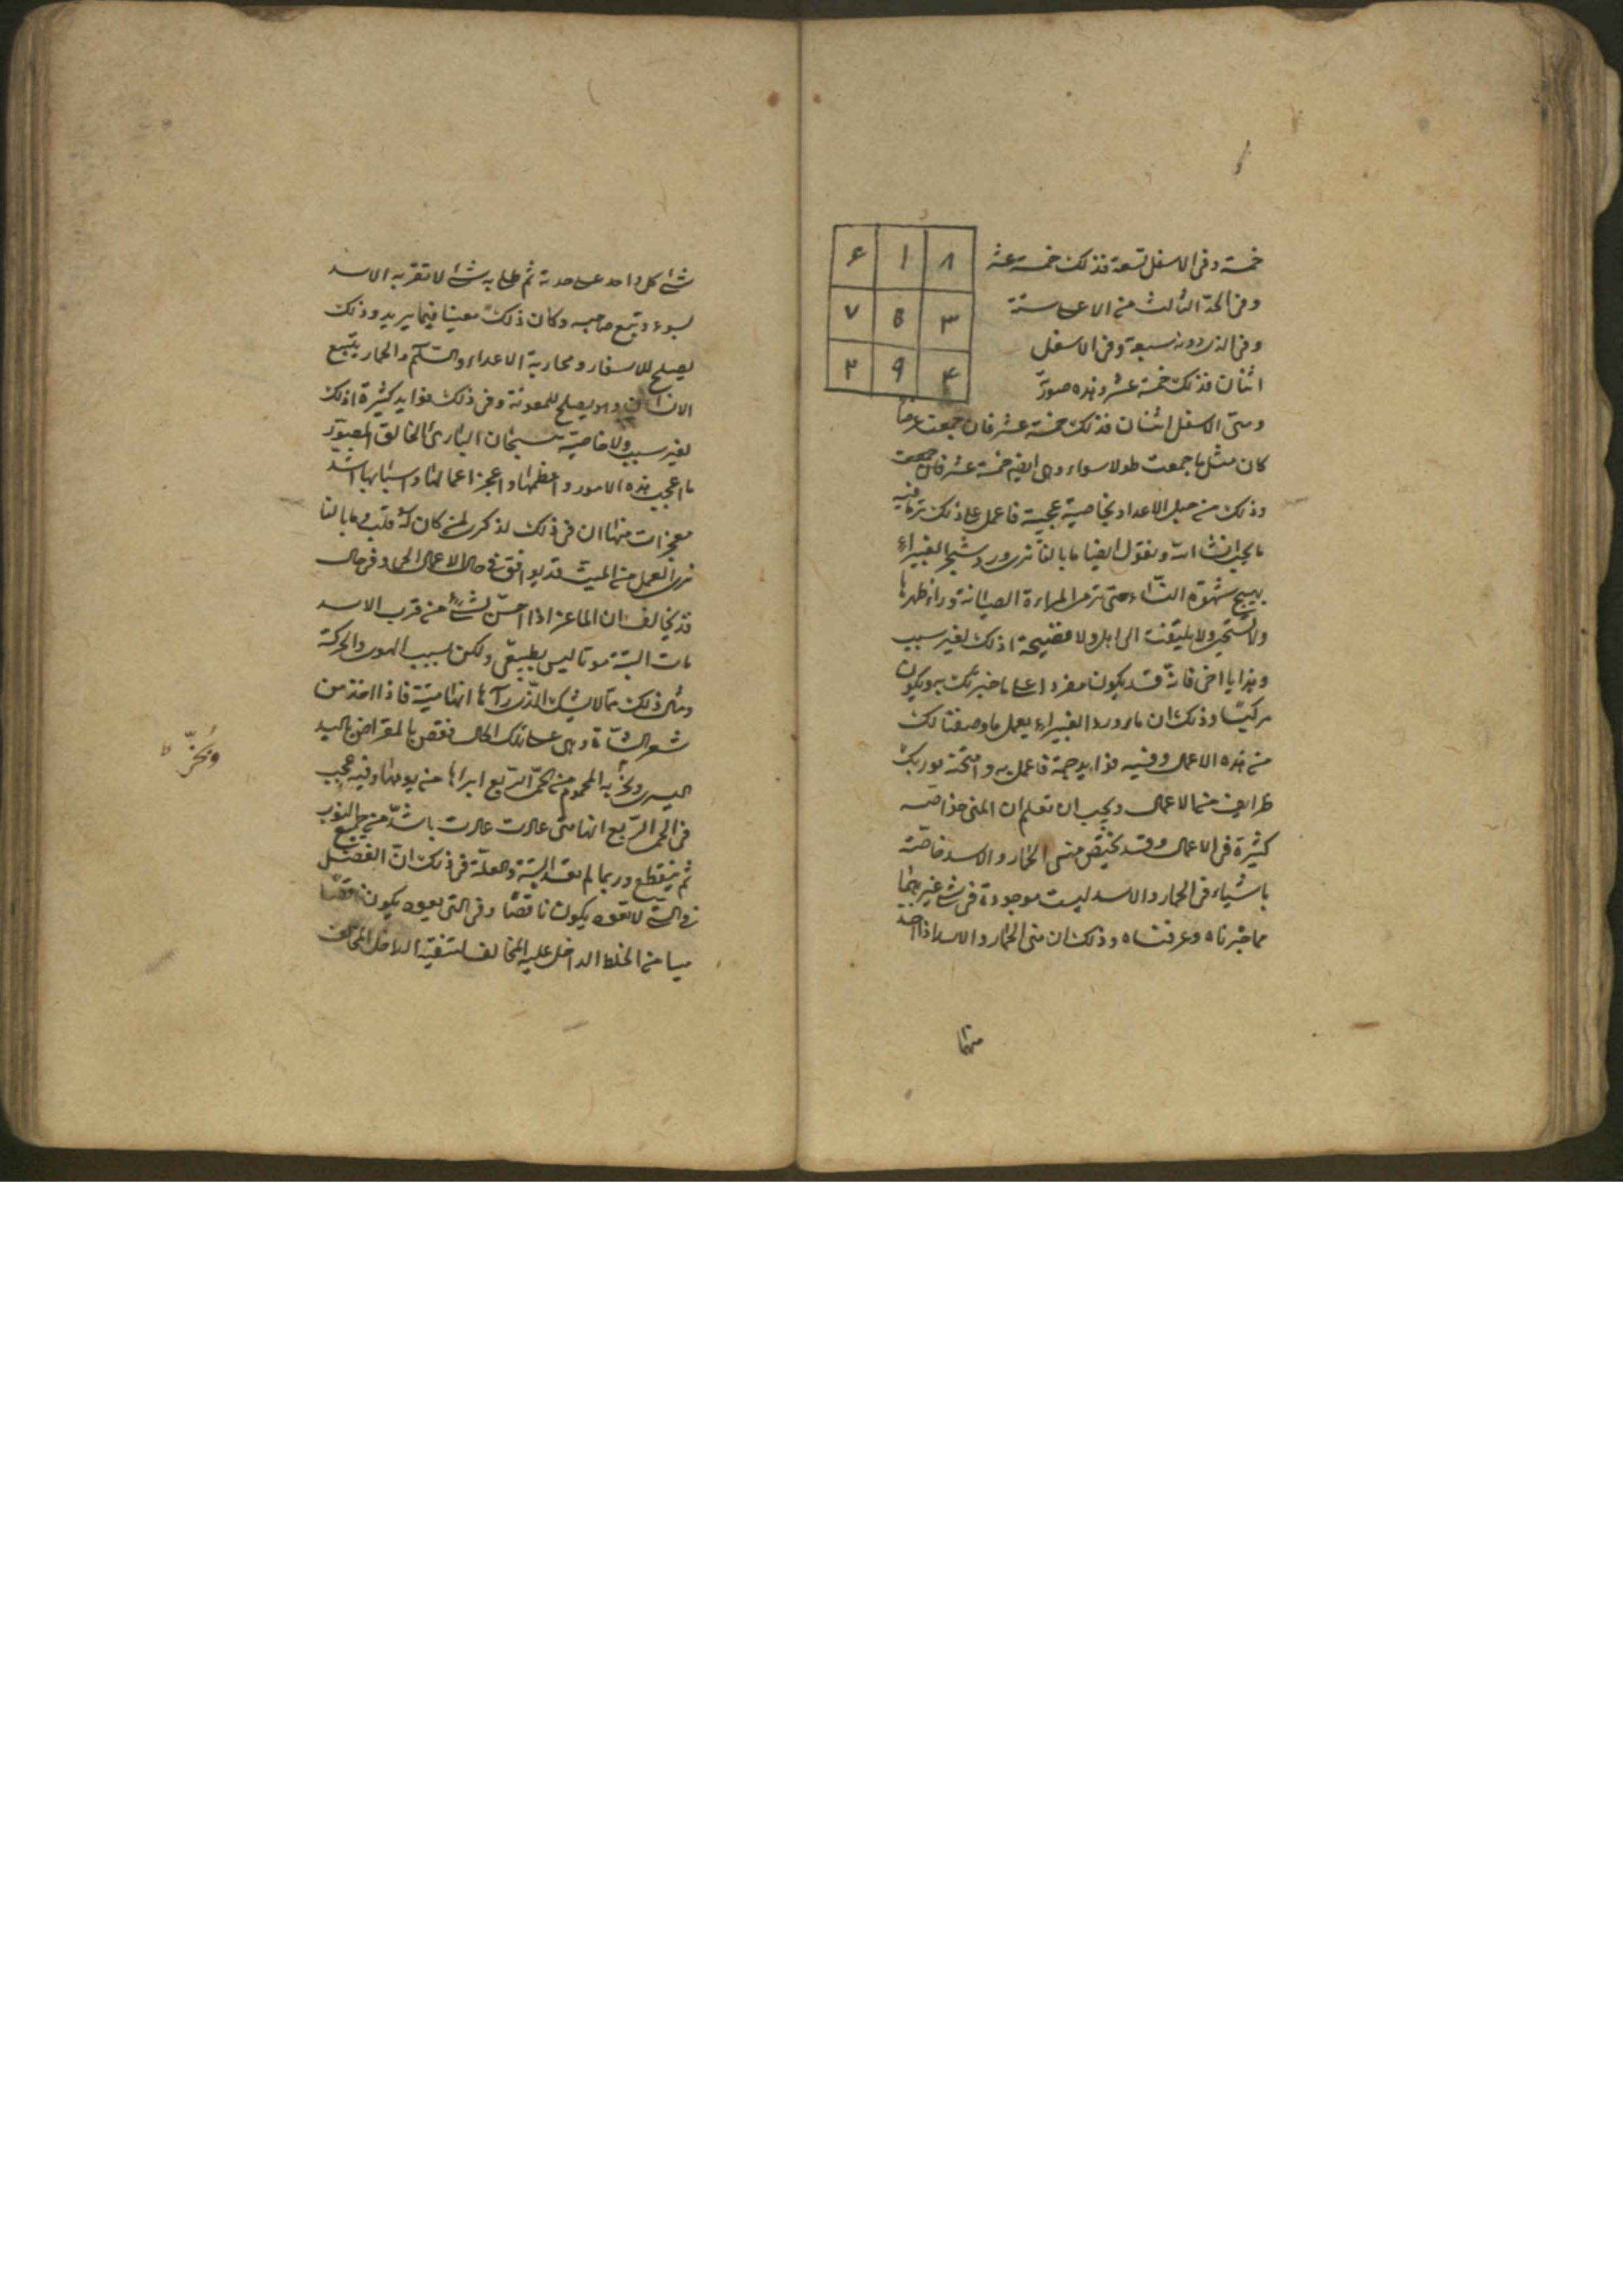 خمسة وفى الاسفل تسعة فذلك خمسة عشر
وفى الحد الثالث من الاعلى ستة
وفى الذى دونه سبعة وفى الاسفل
اثنان فذلك خمسة عشر وهذه صورته
۶ ۱ ۸
۷ ۵ ۳
۲ ۹ ۴
ومتى الاسفل اثنان فذلك خمسة عشر فان جمعت عرضا
كان مثل ما جمعت طولا سواء وهى ايضا خمسة عشر فان جمعت
وذلك من الاعداد بخاصية عجيبة فاعمل على ذلك تر فيه
ما يجب انشا الله ونقول ايضا ما بالنا نرى ورد شجر الغبيراء
يهيج شهوة النساء حتى ترمى المراءة الصيانة وراء ظهرها
ولا تستحى ولا يلتفت الى اهل ولا فضيحة اذلك لغير سبب
وهذا يا اخى فانه قد يكون مفردا على ما خبرتك به ويكون
مركبا وذلك ان ماء ورد الغبيراء يعمل ما وصفنا لك
من هذه الاعمال وفيه فوايد جمة فاعمل به وامتحنه يوريك
ظرايف من الاعمال ويجب ان تعلم ان المنى خواصه
كثيرة فى الاعمال وقد يختص منى الحمار والاسد خاصة
باشياء فى الحمار والاسد ليست موجودة فى شئ غيرهما
مما خبرناه وعرفناه وذلك ان منى الحمار والاسد اذا اخذ
منهما
شئ كل واحد على حدته ثم طلى به شئ لا تقربه الاسد
بسوء وتبع صاحبه وكان ذلك معينا فيما يريد وذلك
يصلح للاسفار ومحاربة الاعداء والسلم والحمار يتبع
الانسان وهو يصلح للمعونة وفى ذلك فوايد كثيرة اذلك
لغير سبب ولا خاصية سبحان البارئ الخالق المصور
ما اعجب هذه الامور واعظمها واعجز اعمالها واسبابها اشد
معجزات منها ان فى ذلك لذكرى لمن كان له قلب وما بالنا
نرى العمل من الميت قد يوافق فى حال الاعمال الحى وفى حال
قد يخالف ان الماعز اذا احس لشئ من قرب الاسد
مات البتة موتا ليس بطبيعى ولكن بسبب الهوى والحركة
ومثل ذلك مما لا يشك الذى رآها انها ميتة فاذا اخذ من
شعر الشاة وهى على تلك الحال فقص بالمقراض باليد
اليسرى وبخر به المحموم من الحمى الربع ابراها من يومها وفيه عجب
فى الحمى الربع انها متى عادت عادت باشد من جميع النوب
ثم ينقطع وربما لم تعد البتة والعلة فى ذلك ان الفصل
فى التى لا تعود يكون ناقصا وفى التى تعود يكون ناقصا
من الخلط الداخل عليه المخالف لتنقية الداخل المخالف
وبخر